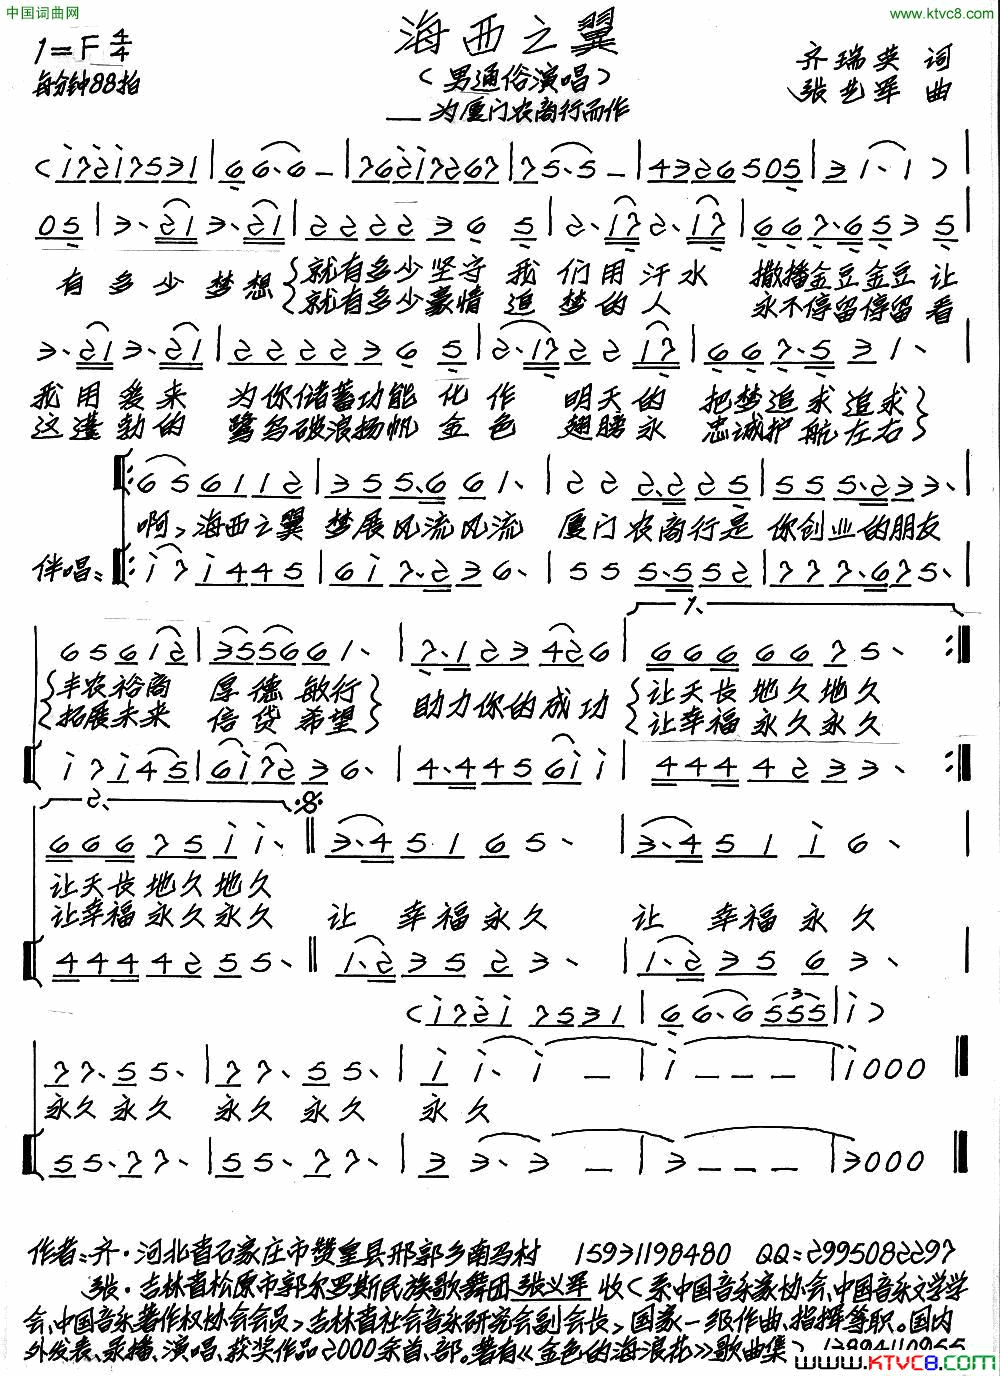 中国词曲网
www.ktvc8.com
海西之翼
1=F 4/4
(男通俗演唱)
齐瑞英 词
每分钟88拍
张艺军 曲
——为厦门农商行而作
有多少梦想 就有多少坚守 我们用汗水 撒播金豆金豆 让
就有多少豪情 追梦的人 永不停留停留 看
我用爱来 为你储蓄功能 化作 明天的 把梦追求追求
这蓬勃的 鹭岛破浪扬帆 金色 翅膀永 忠诚护航左右
啊,海西之翼 梦展风流风流 厦门农商行是 你创业的朋友
伴唱:
丰农裕商 厚德敏行 助力你的成功 让天长地久地久
拓展未来 信贷希望 让幸福永久永久
1、
2、
让天长地久地久
让幸福永久永久 让 幸福永久 让 幸福永久
永久永久 永久永久 永久
作者:齐·河北省石家庄市赞皇县邢郭乡南马村 15931198480 QQ:2995082297
张·吉林省松原市郭尔罗斯民族歌舞团 张艺军 收(系中国音乐家协会、中国音乐文学学
会、中国音乐著作权协会会员,吉林省社会音乐研究会副会长,国家一级作曲、指挥等职。国内
外发表、录播、演唱、获奖作品2000余首、部。著有《金色的海浪花》歌曲集)
www.KTVC8.com